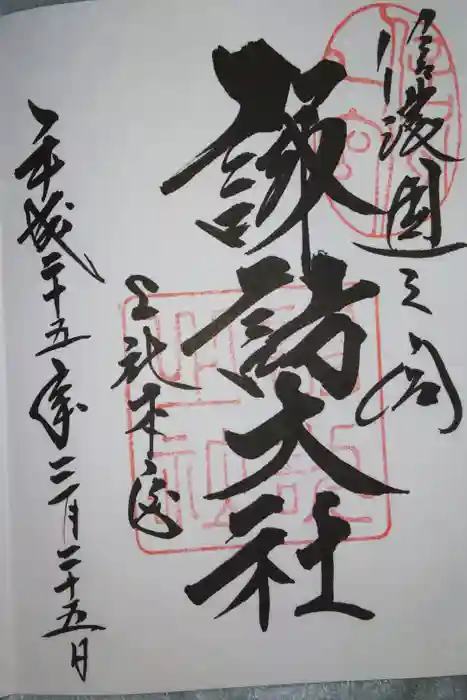 信濃國之一宮
諏訪大社
上社本宮
平成二十五年二月二十五日